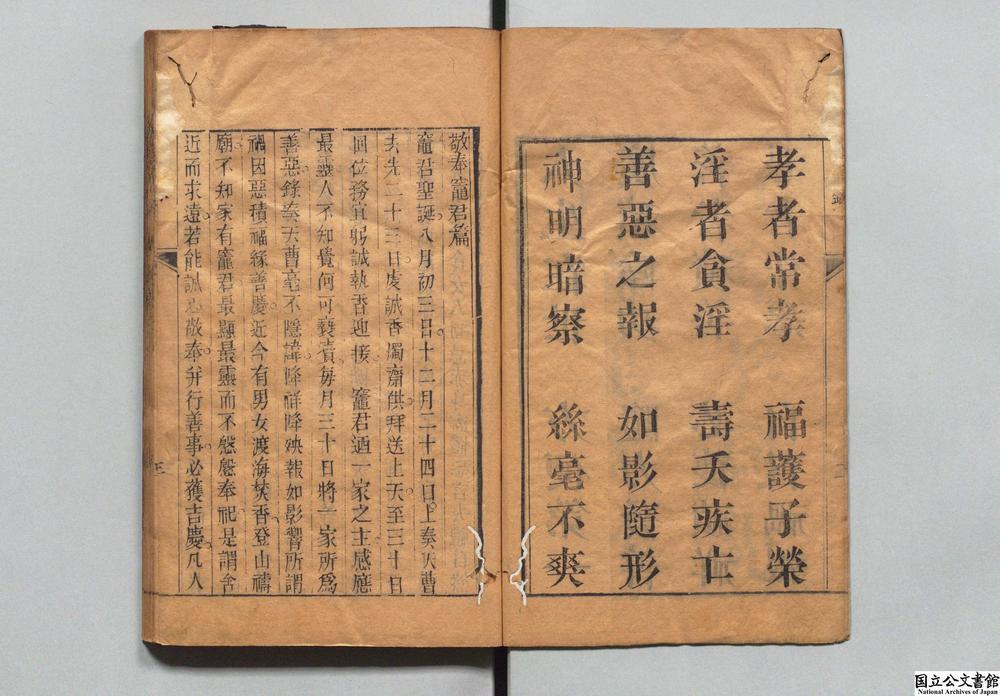 孝者常孝　福護子榮
淫者貪淫　壽夭疾亡
善惡之報　如影隨形
神明暗察　絲毫不爽
敬奉竈君篇
竈君聖誕八月初三日十二月二十四日上奏天曹
去先二十三日虔誠香燭齋供拜送上天至三十日
回位務宜躬誠執香迎接　竈君迺一家之主感應
最靈人不知覺何可褻瀆每月三十日將一家所爲
善惡錄奏天曹毫不隱諱降祥降殃報如影響所謂
禍因惡積福緣善慶近今有男女渡海焚香登山禱
廟不知家有竈君最顯最靈而不慇慇奉祀是謂舍
近而求遠若能誠心敬奉幷行善事必獲吉慶凡人
三
国立公文書館
National Archives of Japan